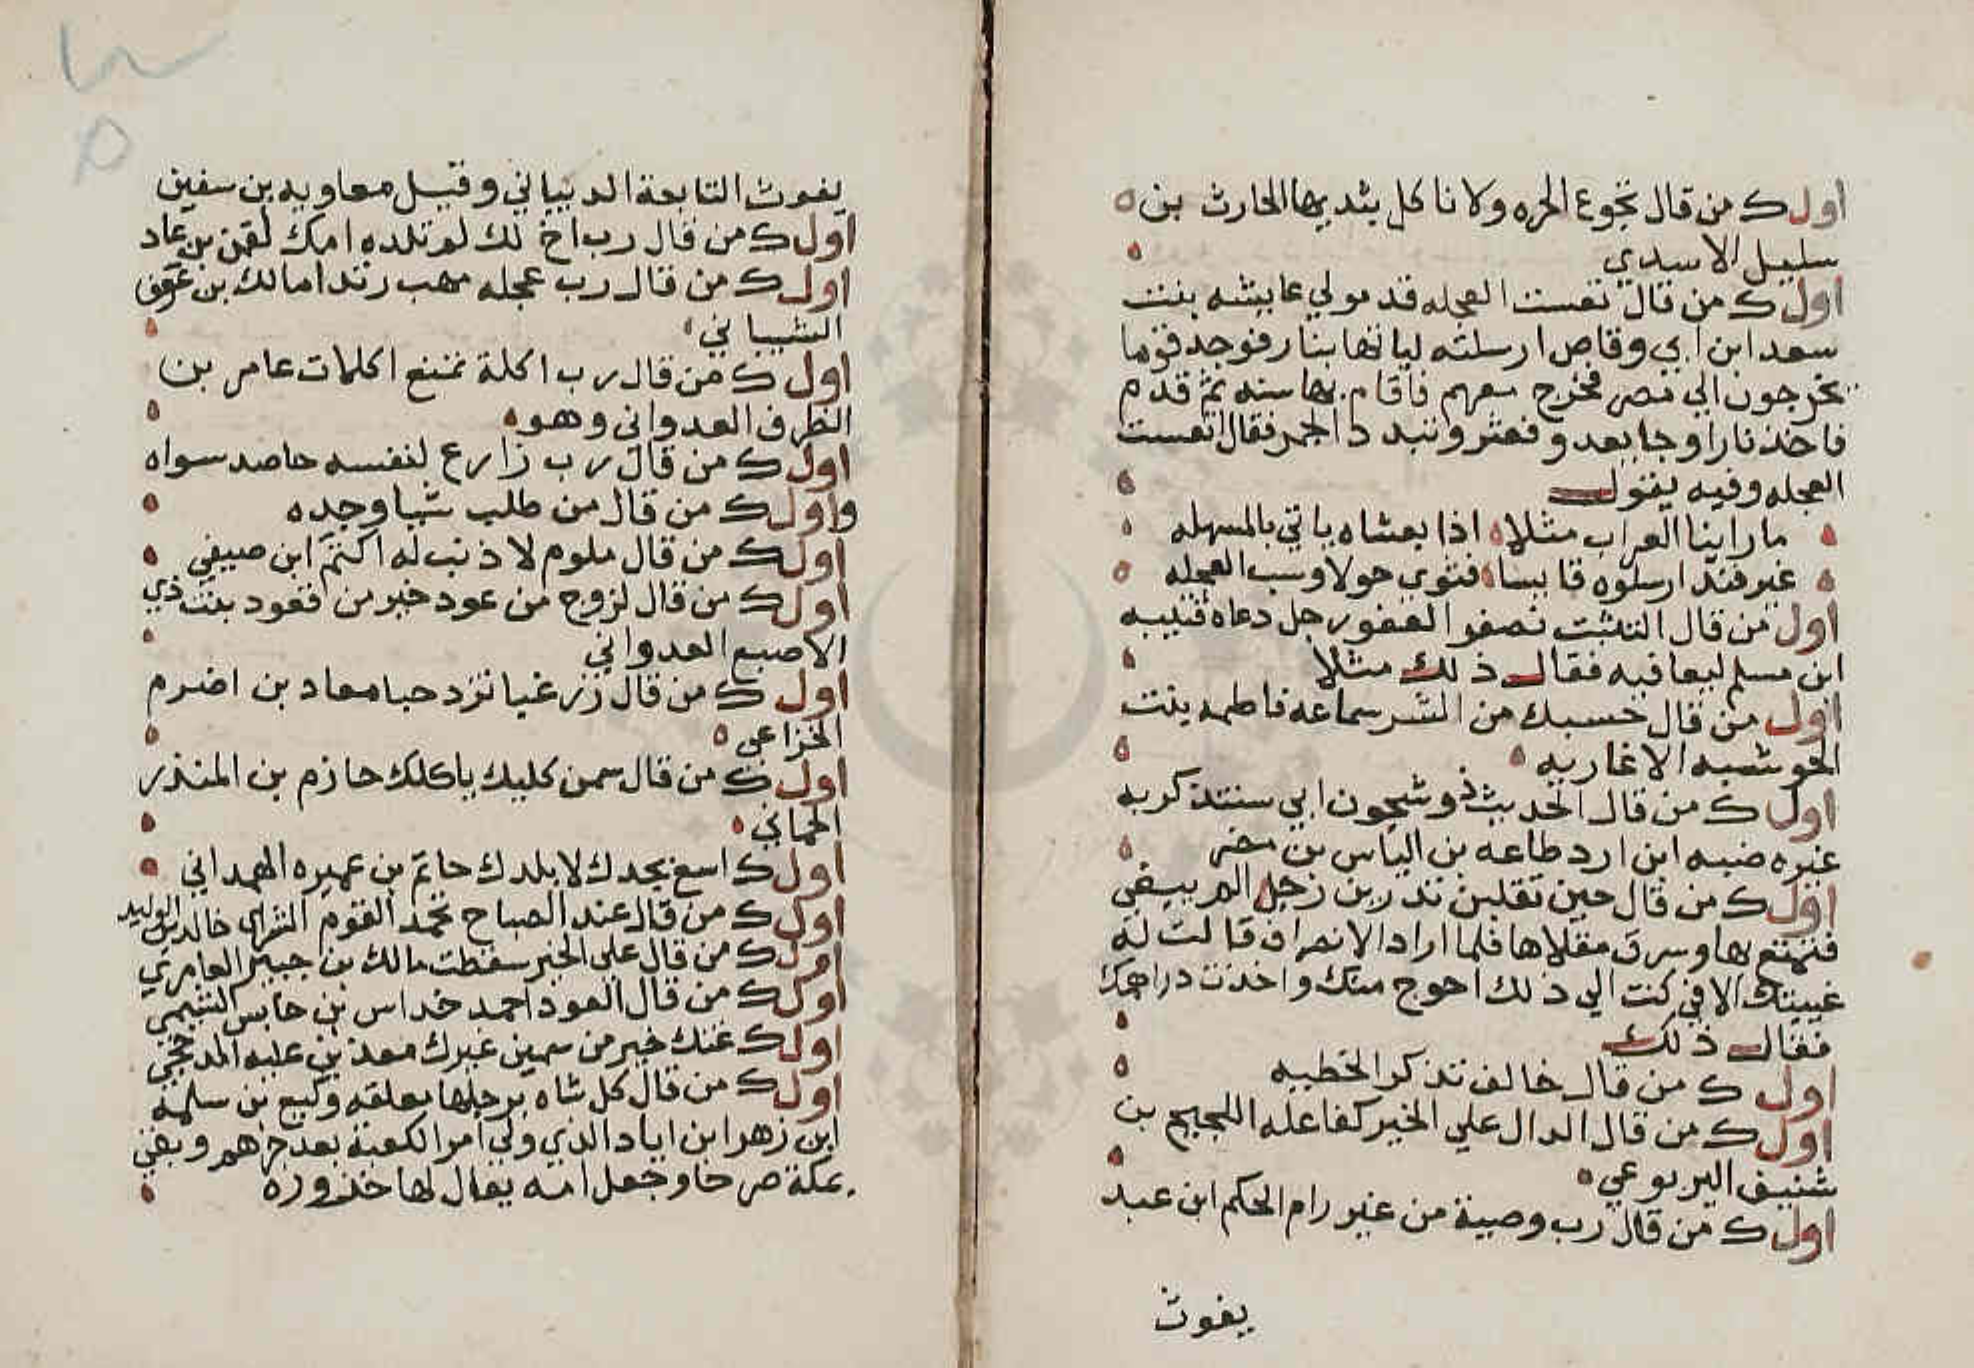 اول ك من قال تجوع الحره ولا تاكل بثديها الحارث بن
سليل الاسدي
اول ك من قال تعست العجله قد مولي عايشه بنت
سعد ابن ابي وقاص ارسلته لياتها بنار فوجد قوما
يخرجون الي مصر فخرج معهم فاقام بها سنه ثم قدم
فاخذ نارا وجا بعدو فعثر وتبدد الجمر فقال تعست
العجله وفيه يقول
ما راينا الغراب مثلا اذا بعثناه ياتي بالمسهله
غير فند ارسلوه قابسا فثوي حولا وسب العجله
اول من قال التثبت نصف العفو رجل دعاه قتيبه
ابن مسلم ليعاقبه فقال ذلك مثلا
اول من قال حسبك من الشر سماعه فاطمه بنت
الخوشبه الاغاريه
اول ك من قال الحديث ذو شجون ابي ستتذكر به
غيره ضبه ابن اد طاعه بن الياس بن مضر
اول ك من قال حين تقلبن تدرين رجل الم ببيغي
فتمتع بها وسرق مقلاها فلما اراد الانصراف قالت له
غبينتك الا في كنت الي ذلك احوج منك واخذت دراهمك
فقال ذلك
اول ك من قال خالف تذكر الحطيه
اول ك من قال الدال علي الخير كفاعله اللجيج بن
شنيف اليربوعي
اول ك من قال رب وصية من غير رام الحكم ابن عبد
يغوث
يغوث التابعة الدبياني وقيل معاويه بن سفين
اول ك من قال رب اخ لك لم تلده امك لقمن بن عاد
اول ك من قال رب عجله مهب رتدا مالك بن عوف
الشيباني
اول ك من قال رب اكلة تمنع اكلات عامر بن
الظرف العدواني وهو
اول ك من قال رب زارع لنفسه حاصد سواه
واول ك من قال من طلب شيا وجده
اول ك من قال ملوم لا ذنب له اكثم ابن صيفي
اول ك من قال لزوج من عود خير من قعود بنت ذي
الاصبع العدواني
اول ك من قال زر غبا تزدد حبا معاد بن اضرم
الخزاعي
اول ك من قال سمن كلبك ياكلك حازم بن المنذر
الحماني
اول ك اسع بجدك لا بلدك حاتم بن عميره الهمداني
اول ك من قال عند الصباح تحمد القوم السراي خالد بن الوليد
اول ك من قال علي الخبير سقطت مالك بن جبير العامري
اول ك من قال العود احمد خداس بن حابس التميمي
اول ك غثك خير من سمين غيرك معد بن عليه المدحجي
اول ك من قال كل شاه برجلها معلقه وكيع بن سلمه
ابن زهر ابن اياد الذي ولي امر الكعبة بعد جرهم وبني
بمكة صرحا وجعل امه يقال لها حزوره